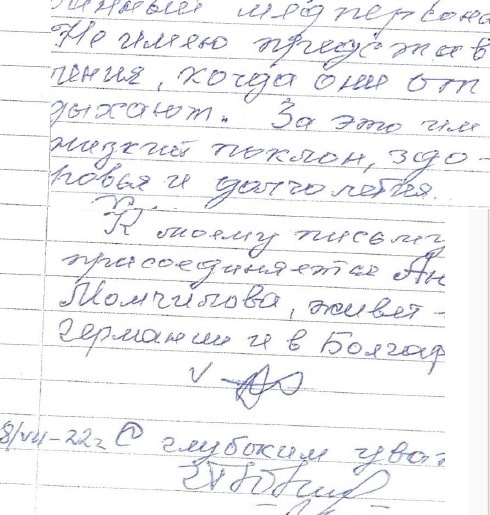 медперсона
Не имею представ
ления, когда они от
дыхают. За это им
низкий поклон, здо-
ровья и долголетия.
К моему письму
присоединяется Ан
Момчилова, живет -
германии и в Болгар
V
8/VII-22г С глубоким уваж